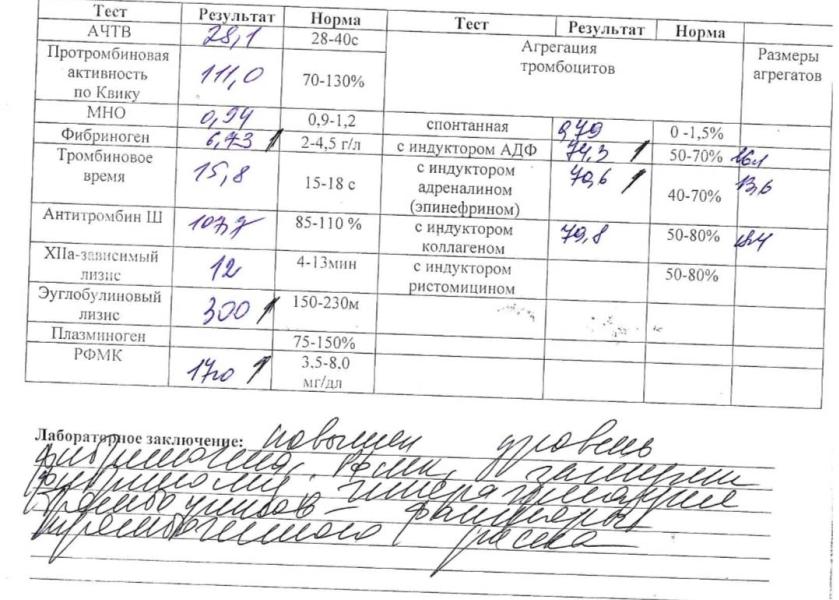 Тест Результат Норма Тест Результат Норма
АЧТВ 28,1 28-40с Агрегация тромбоцитов Размеры агрегатов
Протромбиновая активность по Квику 111,0 70-130%
МНО 0,94 0,9-1,2 спонтанная 0,79 0 -1,5%
Фибриноген 6,73 ↑ 2-4,5 г/л с индуктором АДФ 74,3 ↑ 50-70%
Тромбиновое время 15,8 15-18 с с индуктором адреналином (эпинефрином) 70,6 ↑ 40-70% 13,6
Антитромбин Ш 107,7 85-110 % с индуктором коллагеном 79,8 50-80%
XIIа-зависимый лизис 12 4-13мин с индуктором ристомицином 50-80%
Эуглобулиновый лизис 300 ↑ 150-230м
Плазминоген 75-150%
РФМК 17,0 ↑ 3,5-8,0 мг/дл
Лабораторное заключение: повышен уровень
фибриногена, РФМК,
фибринолиз, гиперагрегация
тромбоцитов – факторы
тромбогенного риска